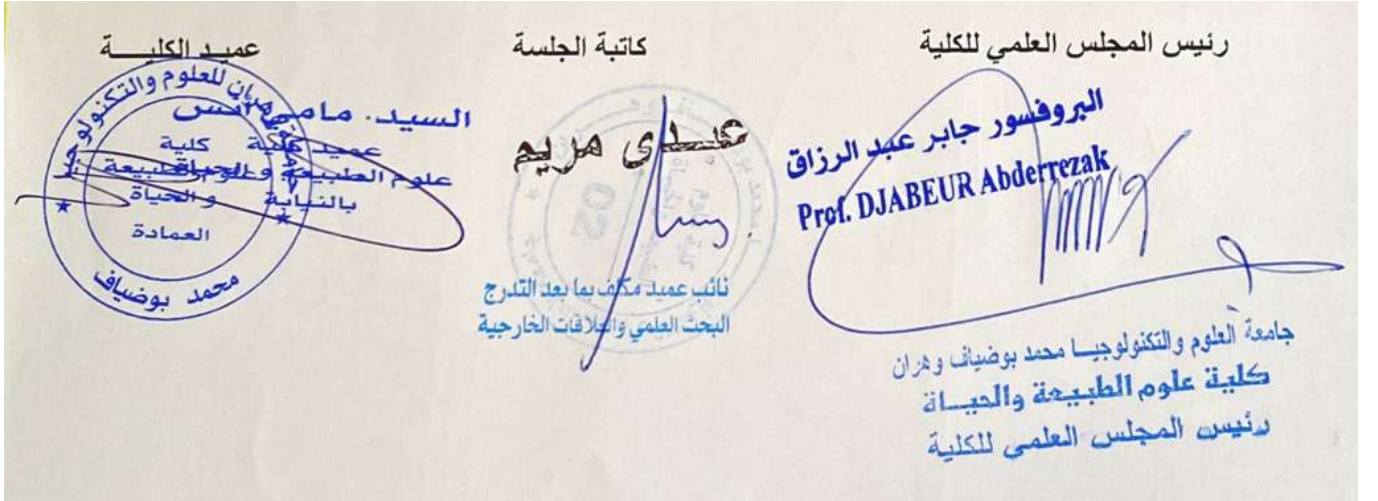 رئيس المجلس العلمي للكلية
البروفسور جابر عبد الرزاق
Prof. DJABEUR Abderrezak
جامعة العلوم والتكنولوجيـا محمد بوضياف وهران
كلية علوم الطبيعة والحيــاة
رئيس المجلس العلمي للكلية
كاتبة الجلسة
عبدي مريم
02
نائب عميد مكلف بما بعد التدرج
البحث العلمي والعلاقات الخارجية
عميد الكليـــة
السيد. مامي أنس
عميد كلية
علوم الطبيعة والحياة
بالنيابة
وهران للعلوم والتكنولوجيا
كلية
علوم الطبيعة
و الحياة
العمادة
محمد بوضياف